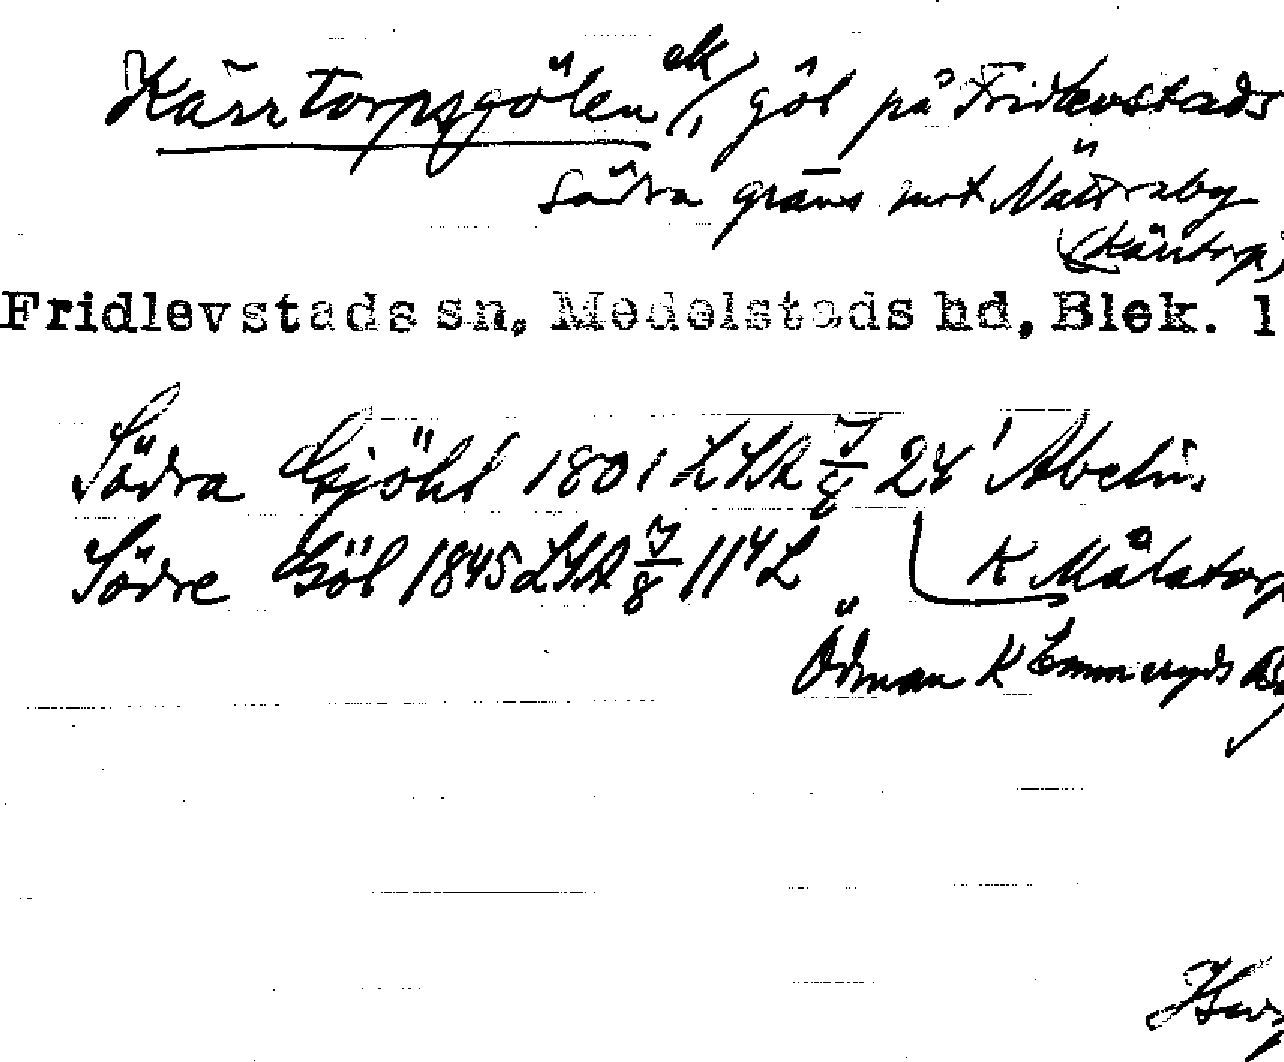 Kärrtorpsgölen ek/, göl på Fridlevstads
Södra gräns mot Nättraby
(Kärrtorp)
Fridlevstads sn, Medelstads hd, Blek. l
Södra Gjöhl 1801 LSA 7/8 24' Abelin
Södre Göl 1845 LSA 7/8 11⁴ L K Målatorp
Ödman K Emmeryds